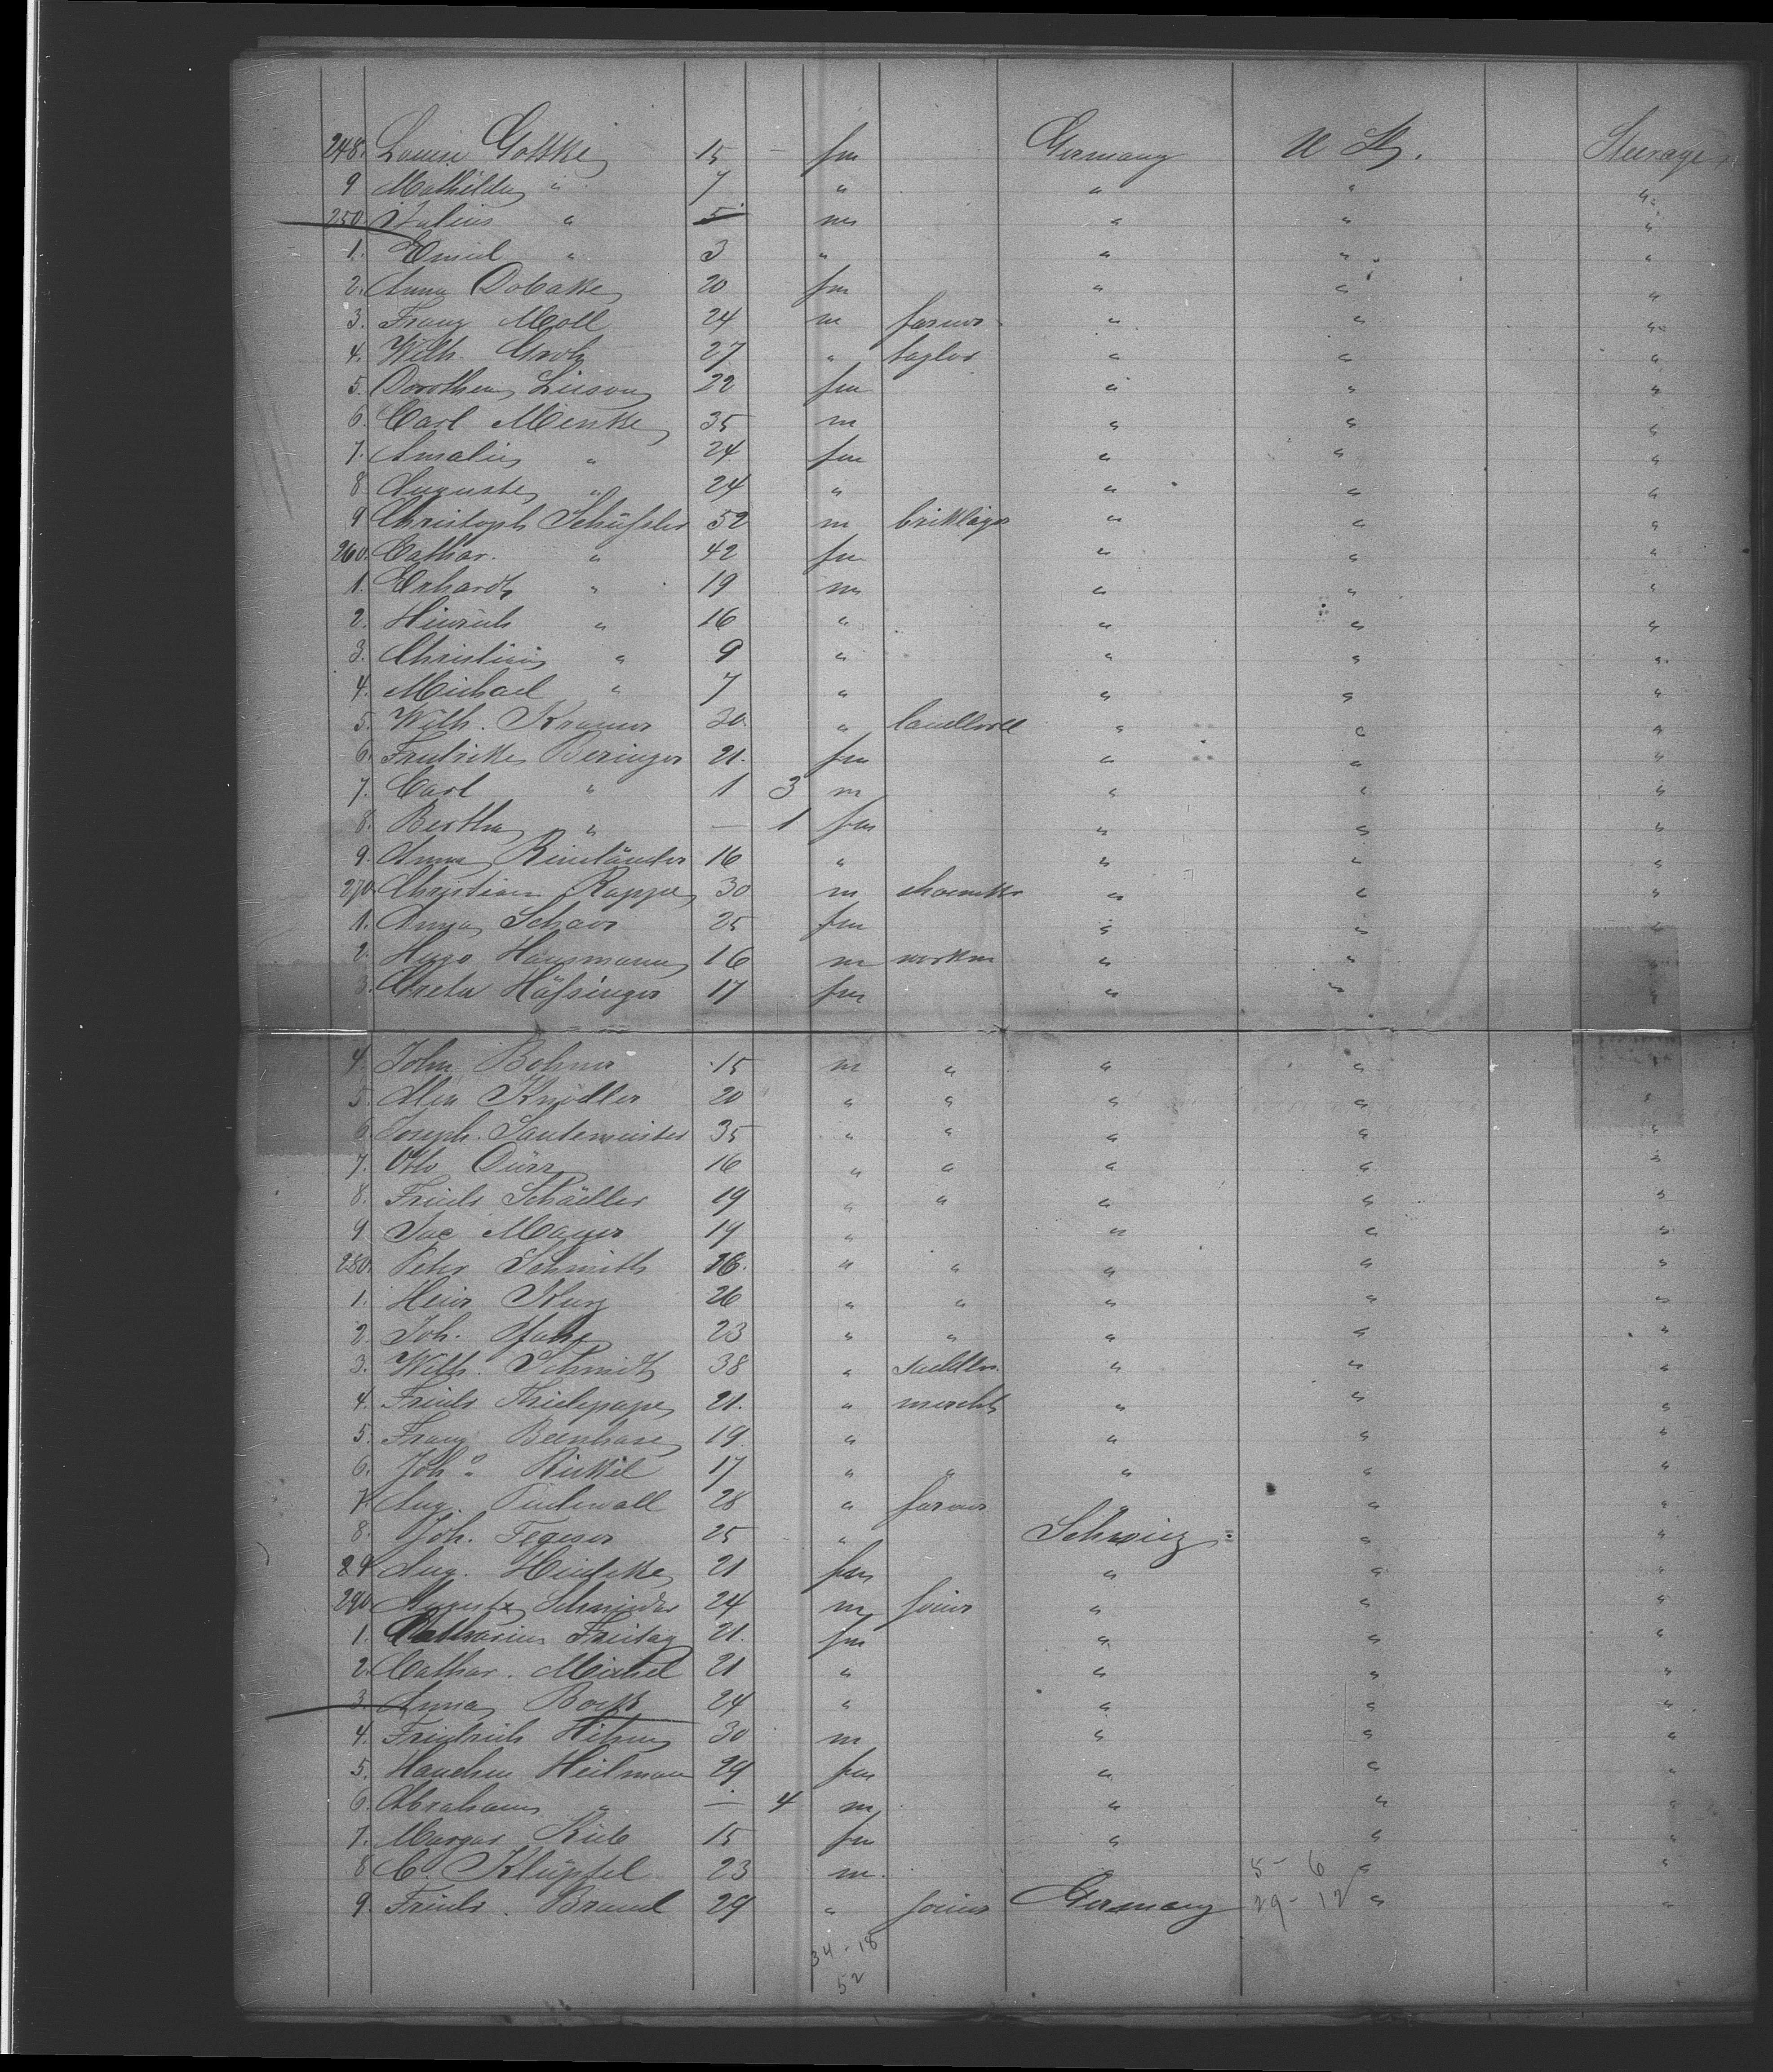 248. Louise Gottke 15 – fm Germany U St. Steerage
9 Mathilde " 7 " " " "
250. Julius " 5 m " " "
1. Emil " 3 " " " "
2. Anna Dobakke 20 fm " " "
3. Franz Moll 24 m farmer " " "
4. Wilh. Groth 27 " taylor " " "
5. Dorothea 22 fm " " "
6. Carl Menke 35 m " " "
7. Amalie " 24 fm " " "
8. Auguste " 24 " " " "
9 Christoph Schüssler 52 m briklayer " " "
260. Cathar. " 42 fm " " "
1. Erhardt " 19 m " " "
2. Heinrich " 16 " " " "
3. Christian " 9 " " " "
4. Michael " 7 " " " "
5. Wilh. Kramer 30 " " " "
6. Friedrike Beringer 21. fm " " "
7. Carl " 1 3 m " " "
8. Bertha " – 1 fm " " "
9. Anna 16 " " " "
270. Christian Rappe 30 m " " "
1. Anna 25 fm " " "
2. Hugo Hausmann 16 m workm " " "
3. Greta Hässinger 17 fm " " "
4. John Bohner 15 m " " " "
5. Alex Knödler 20 " " " " "
6. Joseph. Santemeister 35 " " " " "
7. Otto Dürr 16 " " " " "
8. Friedr Schädler 19 " " " " "
9 Jac Mayer 19 " " " "
280. Peter Schmith 26. " " " " "
1. Heinr Kurz 26 " " " " "
2. Joh. 23 " " " " "
3. Wilh. Schmidt 38 " " " "
4. Friedr Thielepape 21. " mercht " " "
5. Franz Beenhase 19 " " " "
6. Joh. 17 " " " " "
7. Aug. 28 " farmer " " "
8. Joh. Tegeser 25 – " Schweiz " "
89 Aug. 21 fm " " "
290 Auguste Schneider 24 m joiner " " "
1. Catharina Freitag 21. fm " " "
2. Cathar. Michel 21 " " " "
3. Anna Bock 24 " " " "
4. Friedrich 30 m " " "
5. Hanchen Heilman 29 fm " " "
6. Abraham " – 4 m " " "
7. Margar 15 fm " " "
8 C. Klüpfel 23 m. 5 - 6 " "
9. Friedr. Brand 29 " joiner Germany 29 - 12 " "
34 - 18
52